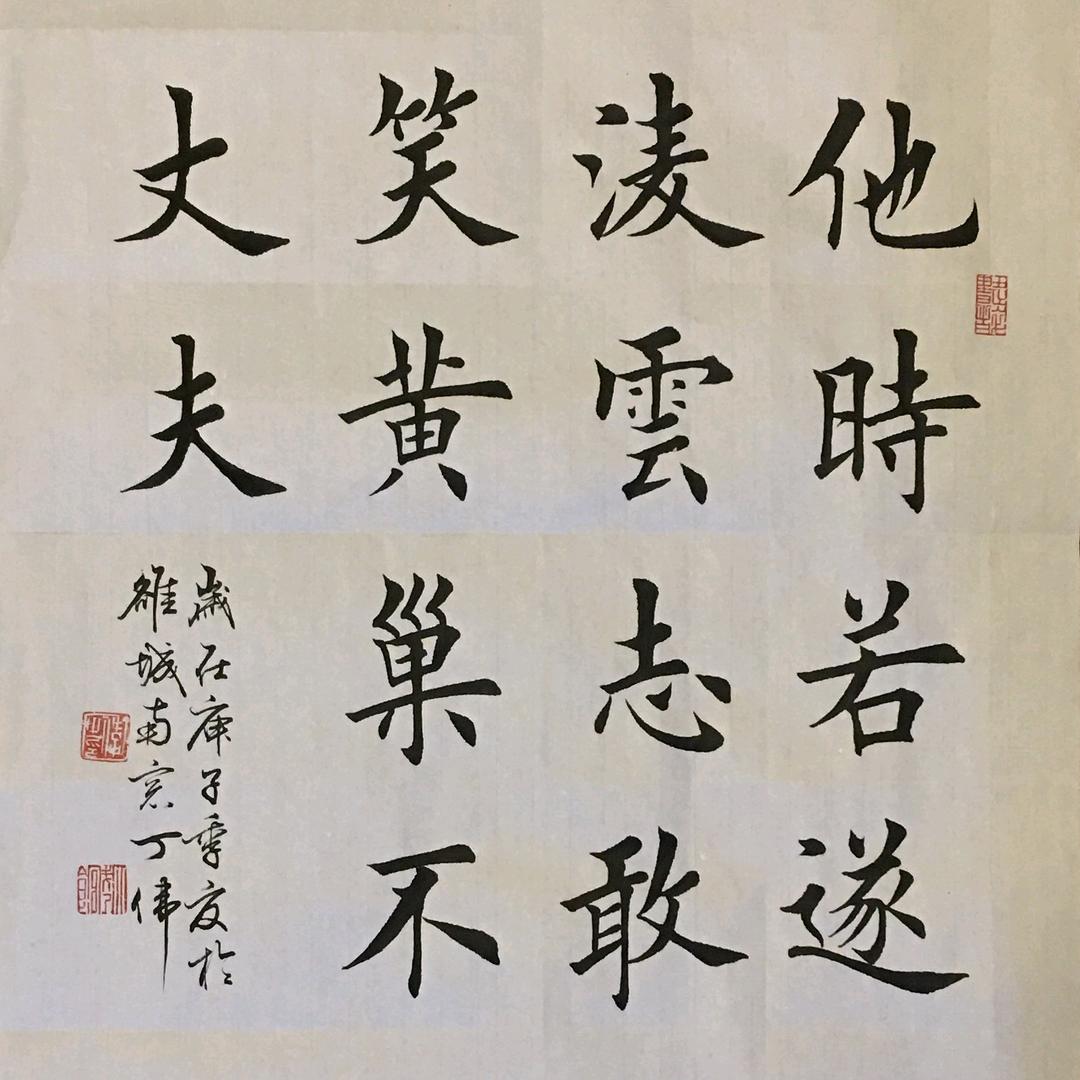 他時若遂
淩雲志敢
笑黄巢不
丈夫
歲在庚子季夏於
雒城南窓丁偉